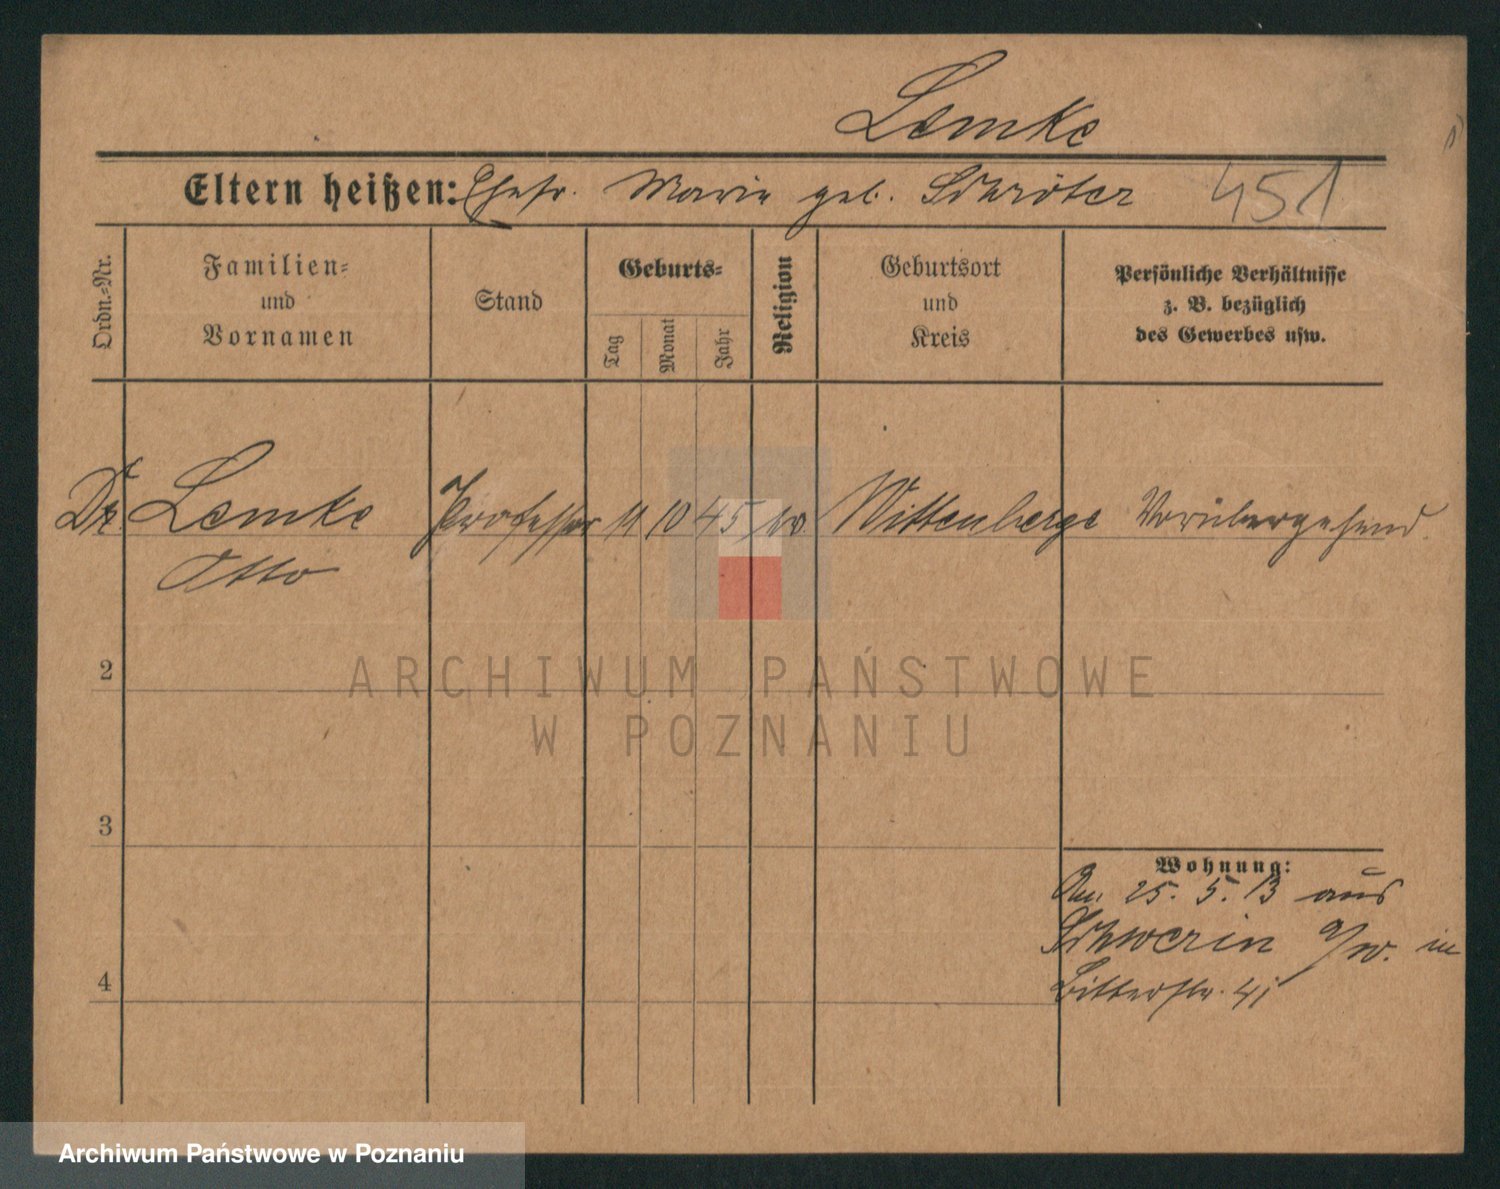 Lemke
Eltern heißen: Ehefr. Marie geb. Schröter 451
Ordn.=Nr.
Familien=
und
Vornamen
Stand
Geburts=
Tag
Monat
Jahr
Religion
Geburtsort
und
Kreis
Persönliche Verhältnisse
z. B. bezüglich
des Gewerbes usw.
Dr. Lemke Professor 19 10 45 ev. Wittenberge Vorübergehend.
Otto
2
ARCHIWUM PAŃSTWOWE
W POZNANIU
3
Wohnung:
25. 5. 13 aus
Schwerin a/W. in
4
Archiwum Państwowe w Poznaniu